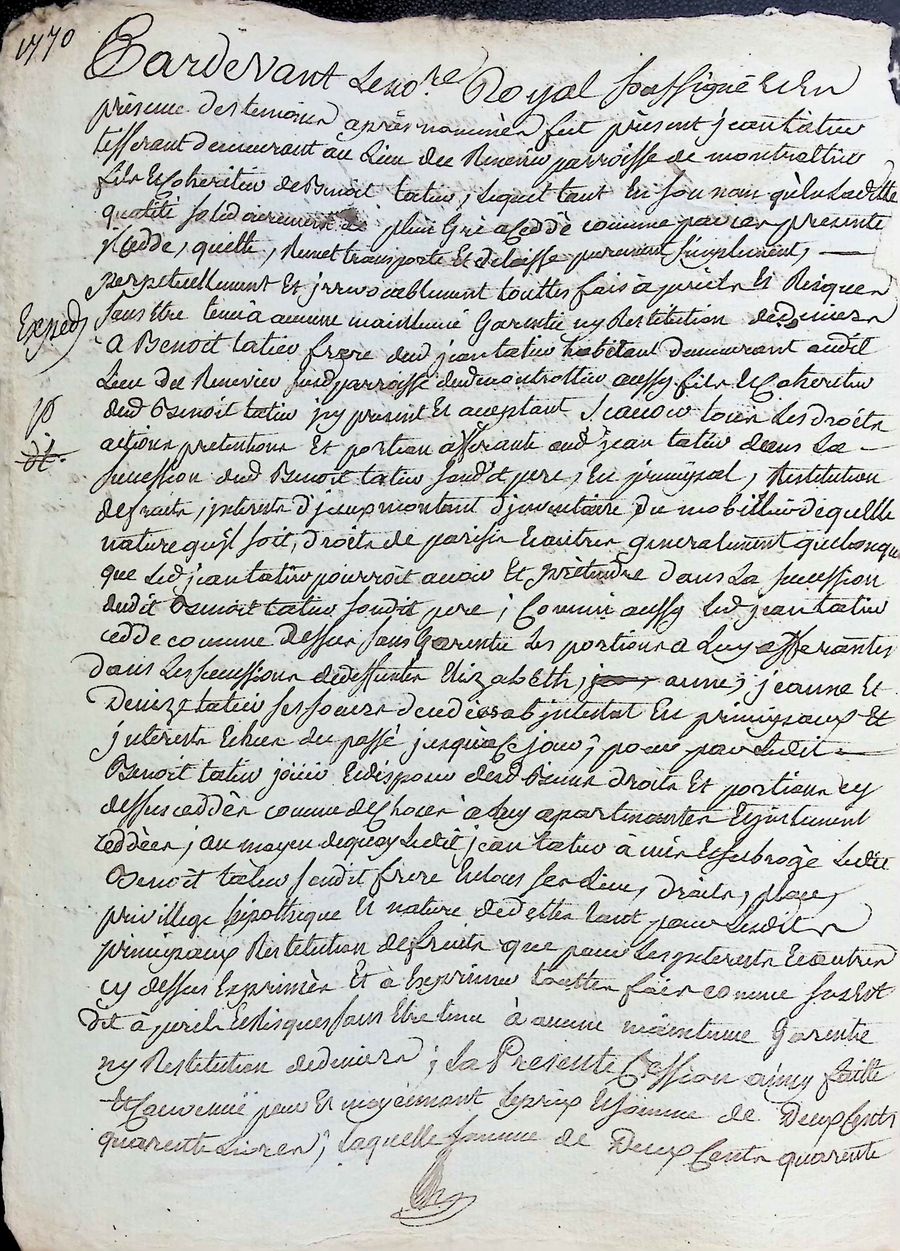 1770
Pardevant Le no.re Royal soussigné et En
présence des temoins après nommés fut présent jean tatiu
tisserant demeurant au Lieu du Renevier parroisse de montrottier
fils et Coheritier de Benoit tatiu, Lequel tant En son nom qu'En Laditte
qualité solidairement de plein Gré a Ceddé comme par ces présente
il Cedde, quitte, Remet transporte Et delaisse purement simplement,
perpetuellement Et jrrevocablement touttes fois à périls Et Risques
sans Etre tenu à aucune maintenüe Garentie ny Restitution de deniers
Exped
à Benoit tatiu frere dud jean tatiu habitant demeurant audit
Lieu du Renevier susd parroisse dud montrottier aussy fils et Coheritier
dud Benoit tatiu jcy present Et aceptant, scavoir tous Les droits
actions pretentions Et portion afférante aud jean tatiu dans La
sucession dud Benoit tatiu sondit pere, En principal, Restitution
de fruits, jnterests d'jceux montant d'jnventaire, du mobillier de quelle
nature qu'jl soit, droits de parisis Et autres generalement quelconque
que Led jean tatiu pourroit avoir Et prétendre dans La sucession
dudit Benoit tatiu sondit pere; Comme aussy Led jean tatiu
cedde comme dessus sans Garentie Les portions a Luy afferantes
dans Les sucessions de deffuntes Elizabeth, anne, jeanne Et
Denize tatiu ses soeurs decedées abjntestat En principaux Et
jnterests Echus du passé jusqu'à Ce jour, pour par Ledit
Benoit tatiu jouir Et disposer desd Biens droits Et portions cy
dessus ceddés comme de Choses à Luy apartenantes Et justement
ceddées; au moyen de quoy Ledit jean tatiu à mis Et subrogé Ledit
Benoit tatiu sondit frere En tous ses Lieu, droits, place,
privillege hipotheque Et nature de dettes tant pour Lesdits
principaux Restitution de fruits que pour Les jnterests Et autres
cy dessus Exprimés Et à Exprimer touttes fois comme sus Est
dit à perils Et Risques sans Etre tenu à aucune maintenue Garentie
ny Restitution de deniers; La Presente Cession ainsy faitte
Et Convenüe pour Et moyennant Le prix Et somme de Deux Cents
quarente Livres, Laquelle somme de Deux Cents quarente